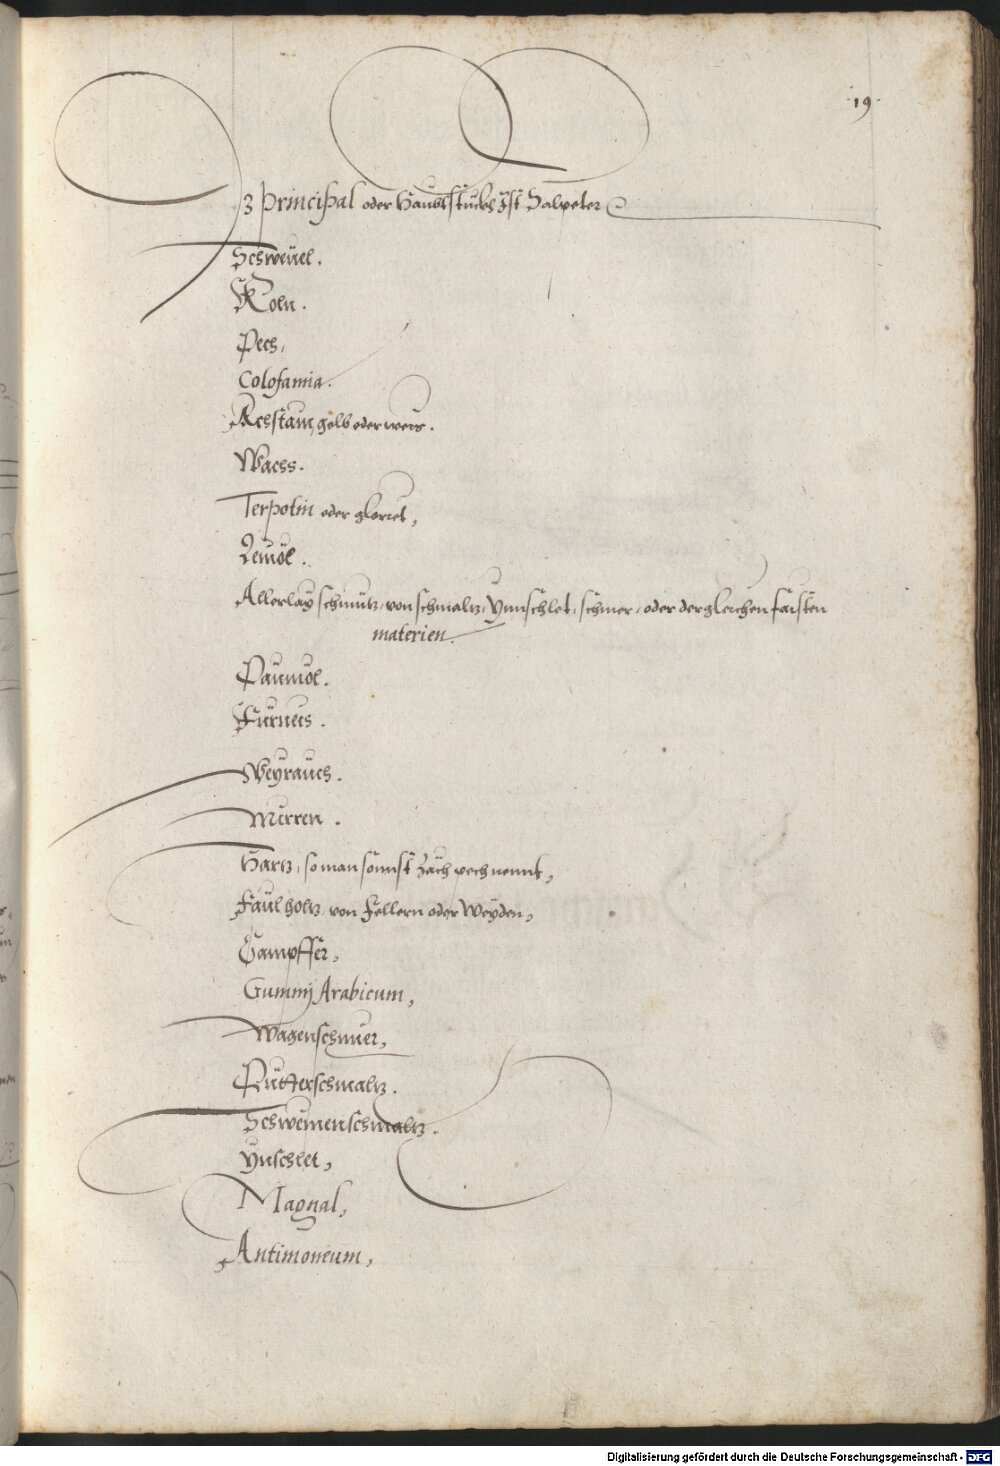 19
Dz Principal oder Haubtstuckh Ist Salpeter
Schwevel.
Koln.
Pech,
Colofamia.
Achstain, gelb oder weis.
Wachs.
Terpotin oder gloriet,
Leinöl.
Allerlaÿ schmutz, von schmaltz, Ynnschlet, schmer, oder dergleichen faisten
materien.
Paumöl.
Fürneis.
Weÿrauch.
Mirren.
Hartz, so man sonnst Zäch pech nennt,
Faulholtz, von Fellern oder Weÿden,
Campffer,
Gummj Arabicum,
Wagenschmier,
Putterschmaltz.
Schweinenschmaltz.
Ynschlet,
Magnal,
Antimonium,
Digitalisierung gefördert durch die Deutsche Forschungsgemeinschaft - DFG